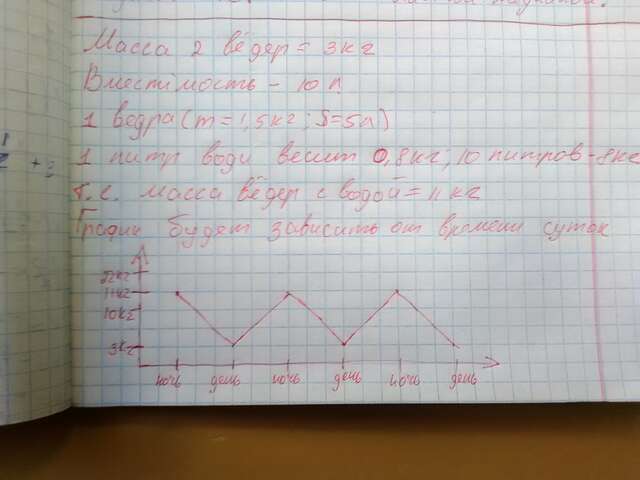 Масса 2 ведер = 3кг
Вместимость - 10 л.
1 ведра (m = 1,5кг; S=5л)
1 литр воды весит 0,8кг, 10 литров-8кг
т.е. масса ведер с водой = 11 кг
График будет зависить от времени суток
11кг
10кг
3кг
ночь день ночь день ночь день